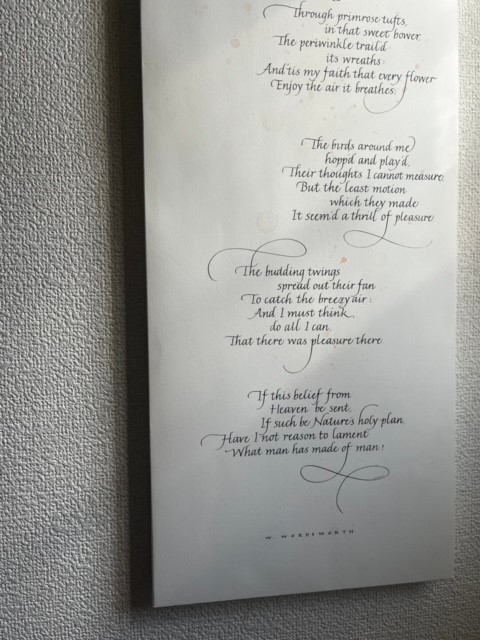 Through primrose tufts,
in that sweet bower,
The periwinkle trail'd
its wreaths:
And 'tis my faith that every flower
Enjoy the air it breathes.
The birds around me
hopp'd and play'd,
Their thoughts I cannot measure,
But the least motion
which they made
It seem'd a thrill of pleasure
The budding twings
spread out their fan
To catch the breezy air:
And I must think,
do all I can,
That there was pleasure there.
If this belief from
Heaven be sent,
If such be Nature's holy plan,
Have I not reason to lament
What man has made of man?
W. WORDSWORTH